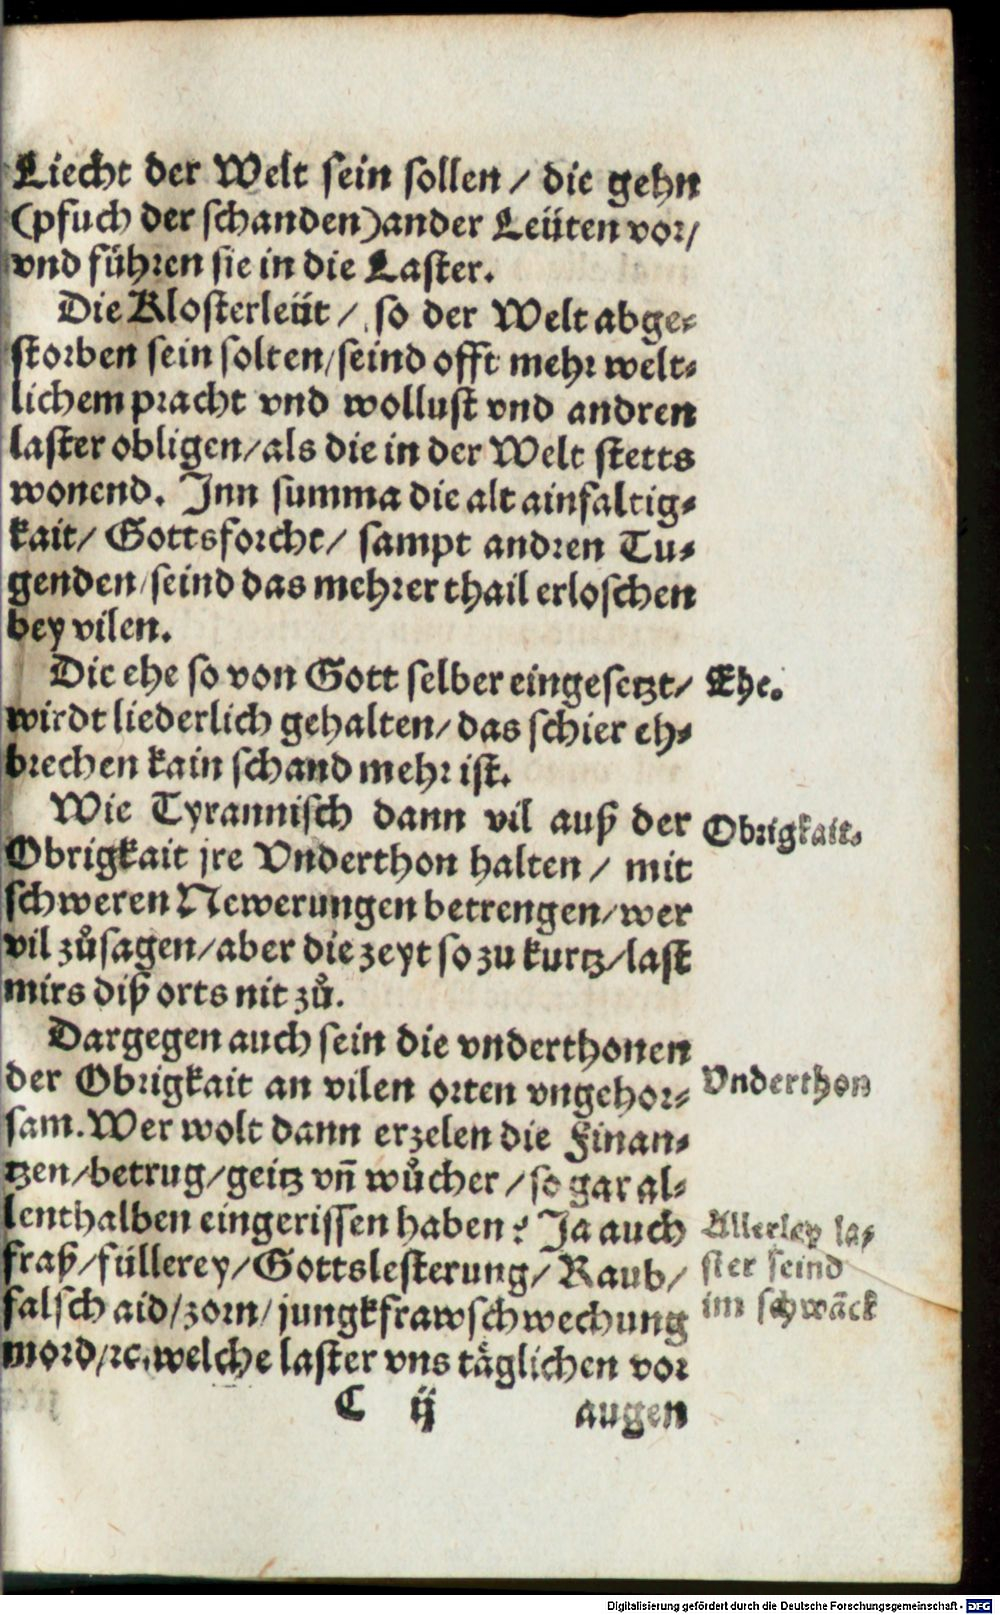 Liecht der Welt sein sollen / die gehn
(pfuch der schanden) ander Leüten vor/
vnd führen sie in die Laster.
Die Klosterleüt / so der Welt abge-
storben sein solten/seind offt mehr welt-
lichem pracht vnd wollust vnd andren
laster obligen/als die in der Welt stetts
wonend. Inn summa die alt ainfaltig-
kait/ Gottsforcht/ sampt andren Tu-
genden/seind das mehrer thail erloschen
bey vilen.
Die ehe so von Gott selber eingesetzt/
Ehe.
wirdt liederlich gehalten/das schier eh-
brechen kain schand mehr ist.
Wie Tyrannisch dann vil auß der
Obrigkait.
Obrigkait jre Vnderthon halten / mit
schweren Newerungen betrengen/wer
vil zůsagen/aber die zeyt so zu kurtz/last
mirs diß orts nit zů.
Dargegen auch sein die vnderthonen
der Obrigkait an vilen orten vngehor-
Vnderthon
sam. Wer wolt dann erzelen die Finan-
tzen/betrug/geitz vn̄ wůcher / so gar al-
lenthalben eingerissen haben? Ja auch
Allerley la-
fraß/füllerey/Gottslesterung/Raub/
ster seind
falsch aid/zorn/jungkfrawschwechung
im schwāck
mord/ꝛc. welche laster vns täglichen vor
C ij
augen
Digitalisierung gefördert durch die Deutsche Forschungsgemeinschaft - DFG